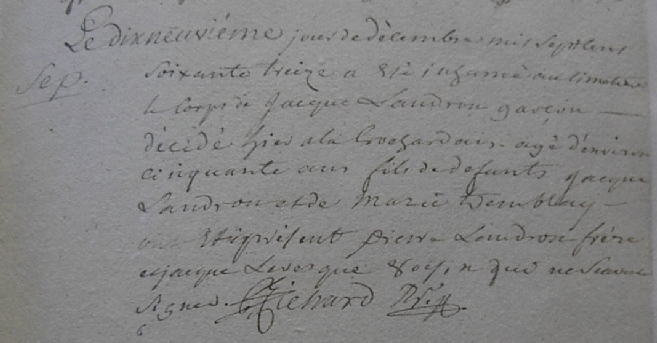 Le dixneuviéme jour de décembre mil sept cens
Sep.
soixante treize a été inhumé au cimetiere
le corps de Jacque Landron garçon
décédé hier a la Crochardais agé d'environ
cinquante ans fils de defunts Jacque
Landron et de Marie Tremblay
ont été présent Pierre Landron frère
et Jacque Levesque qui ne scavent
signer. Richard Ptr.